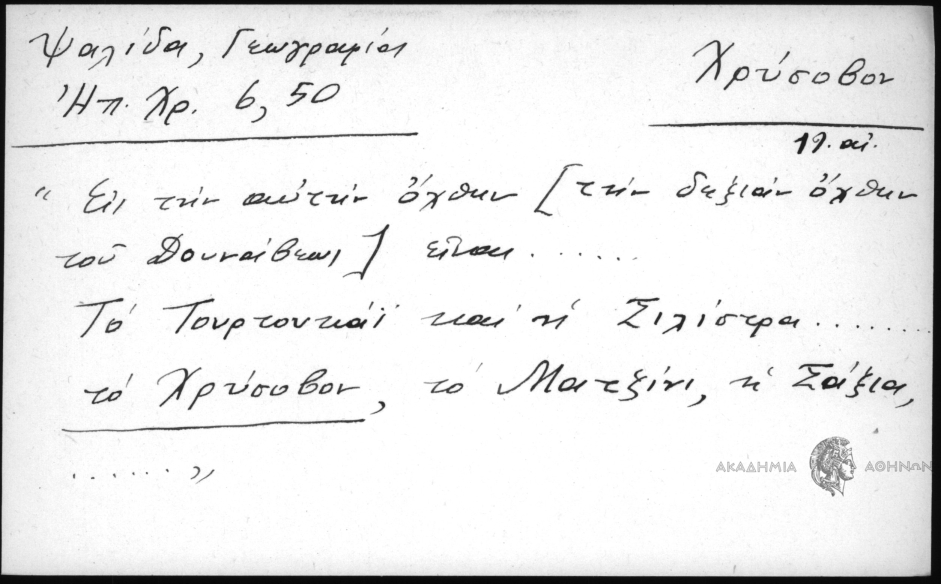 Ψαλίδα, Γεωγραφία
Ἠπ. Χρ. 6, 50
Χρύσοβον
19. αἰ.
“ Εἰς τὴν αὐτὴν ὄχθην [τὴν δεξιὰν ὄχθην
τοῦ Δουνάβεως] εἶναι.......
Τὸ Τουρτουκάϊ καὶ ἡ Σιλίστρα........
τὸ Χρύσοβον, τὸ Ματξίνι, ἡ Σάξια,
....... „
ΑΚΑΔΗΜΙΑ ΑΘΗΝΩΝ